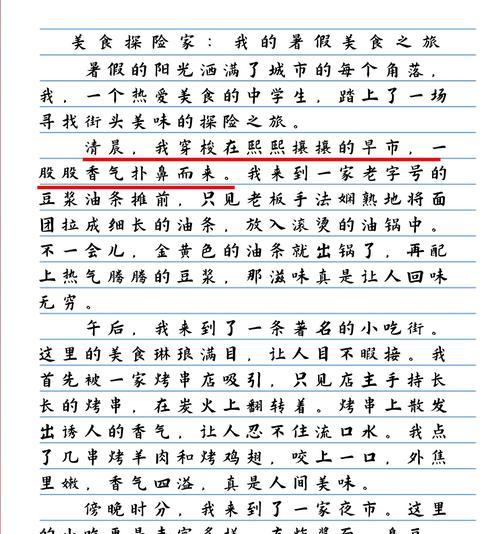 美食探险家：我的暑假美食之旅
暑假的阳光洒满了城市的每个角落，
我，一个热爱美食的中学生，踏上了一场
寻找街头美味的探险之旅。
清晨，我穿梭在熙熙攘攘的早市，一
股股香气扑鼻而来。我来到一家老字号的
豆浆油条摊前，只见老板手法娴熟地将面
团拉成细长的油条，放入滚烫的油锅中。
不一会儿，金黄色的油条就出锅了，再配
上热气腾腾的豆浆，那滋味真是让人回味
无穷。
午后，我来到了一条著名的小吃街。
这里的美食琳琅满目，让人目不暇接。我
首先被一家烤串店吸引，只见店主手持长
长的烤串，在炭火上翻转着。烤串上散发
出诱人的香气，让人忍不住流口水。我点
了几串烤羊肉和烤鸡翅，咬上一口，外焦
里嫩，香气四溢，真是人间美味。
傍晚时分，我来到了一家夜市。这里
的小吃更是丰富多样，